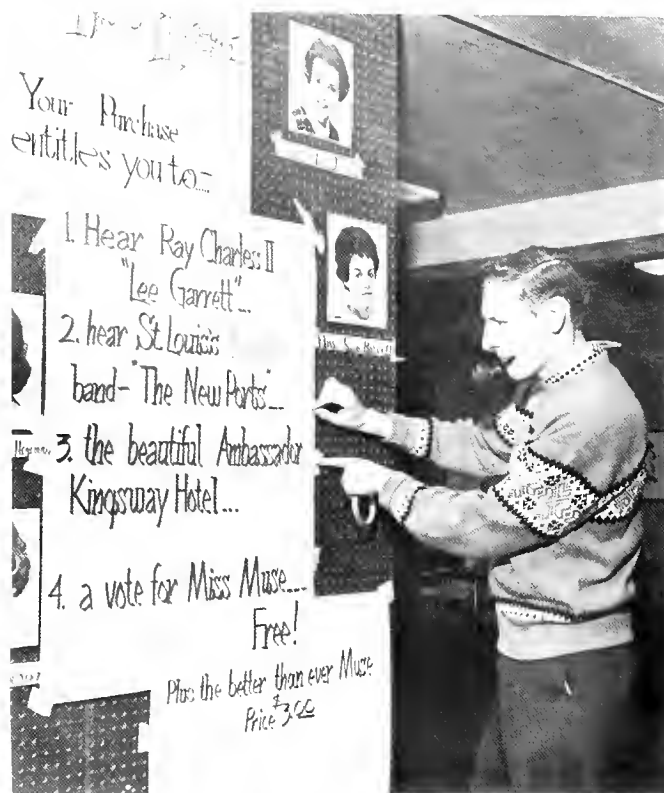 Your Purchase
entitles you to—
1. Hear Ray Charles II
"Lee Garrett"...
2. hear St Louis's
band-"The New Ports"...
3. the beautiful Ambassador
Kingsway Hotel...
4. a vote for Miss Muse....
Free!
Plus the better than ever Muse
Price $3.00